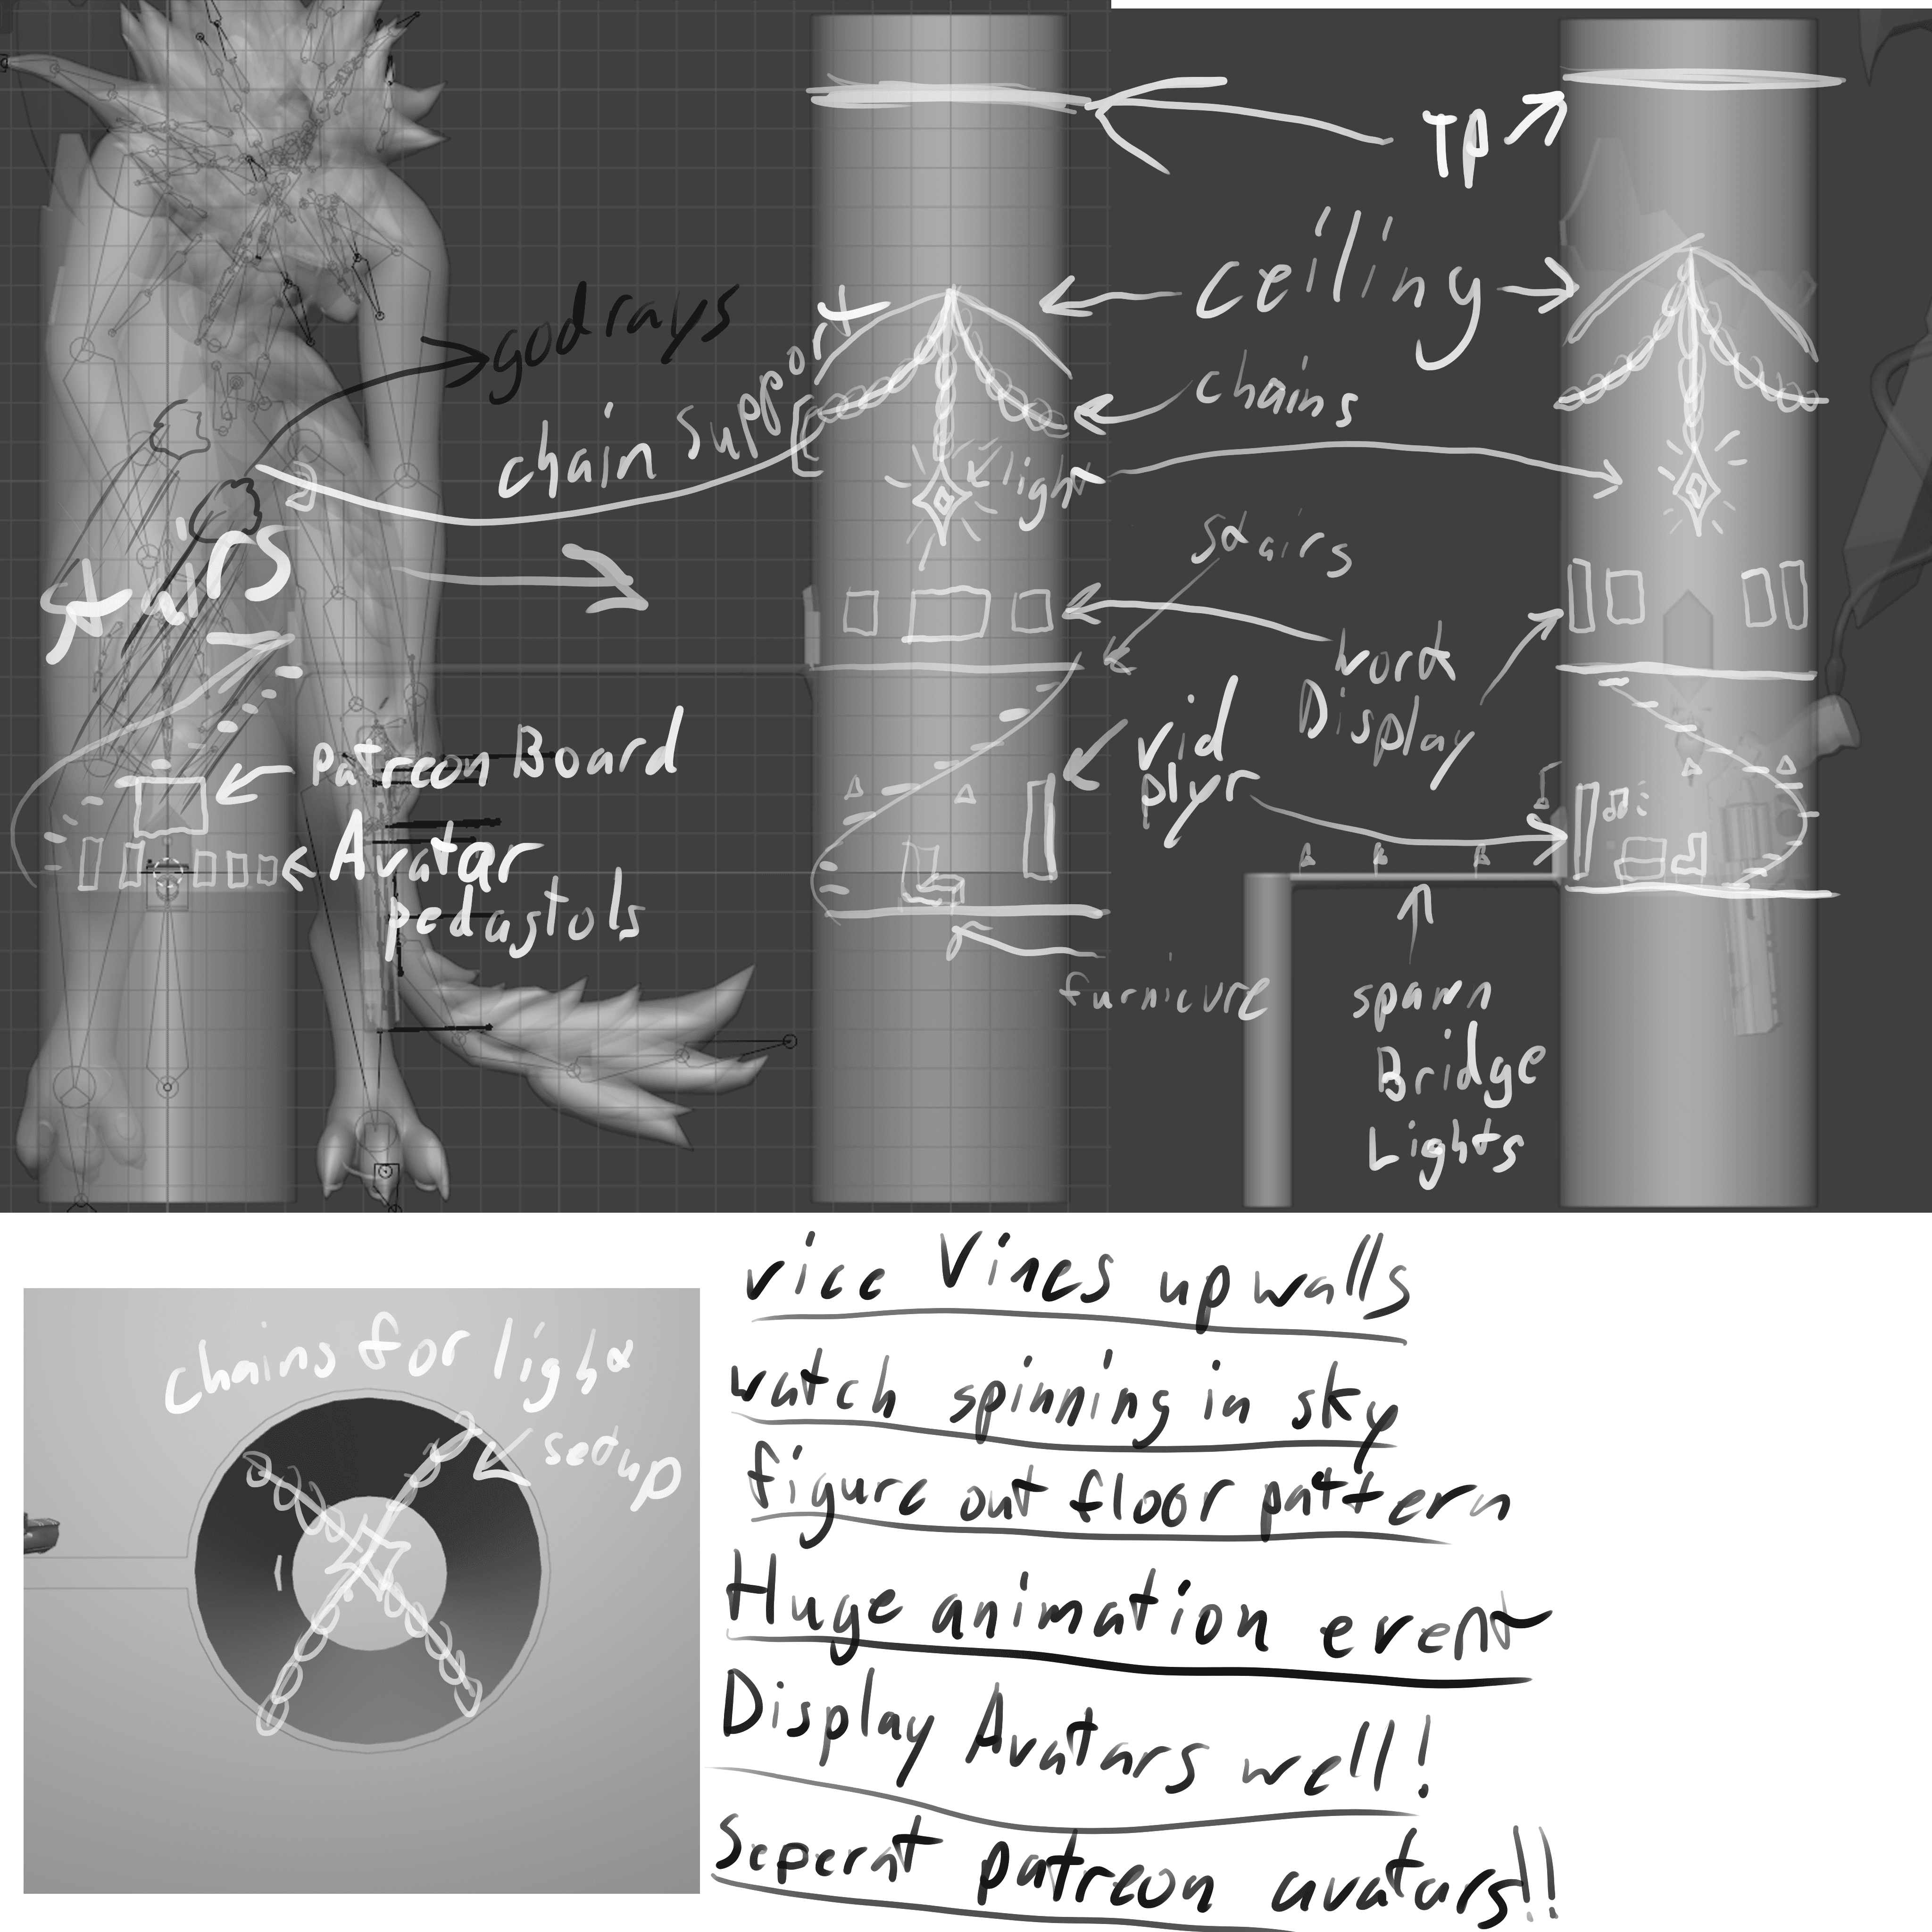 TP
ceiling
godrays
chain support
chains
light
stairs
stairs
work
Display
vid
plyr
patreon Board
Avatar
pedastols
furniture
spawn
Bridge
Lights
chains for light
setup
vice Vines up walls
watch spinning in sky
figure out floor pattern
Huge animation event
Display Avatars well!
Seperat patreon avatars!!